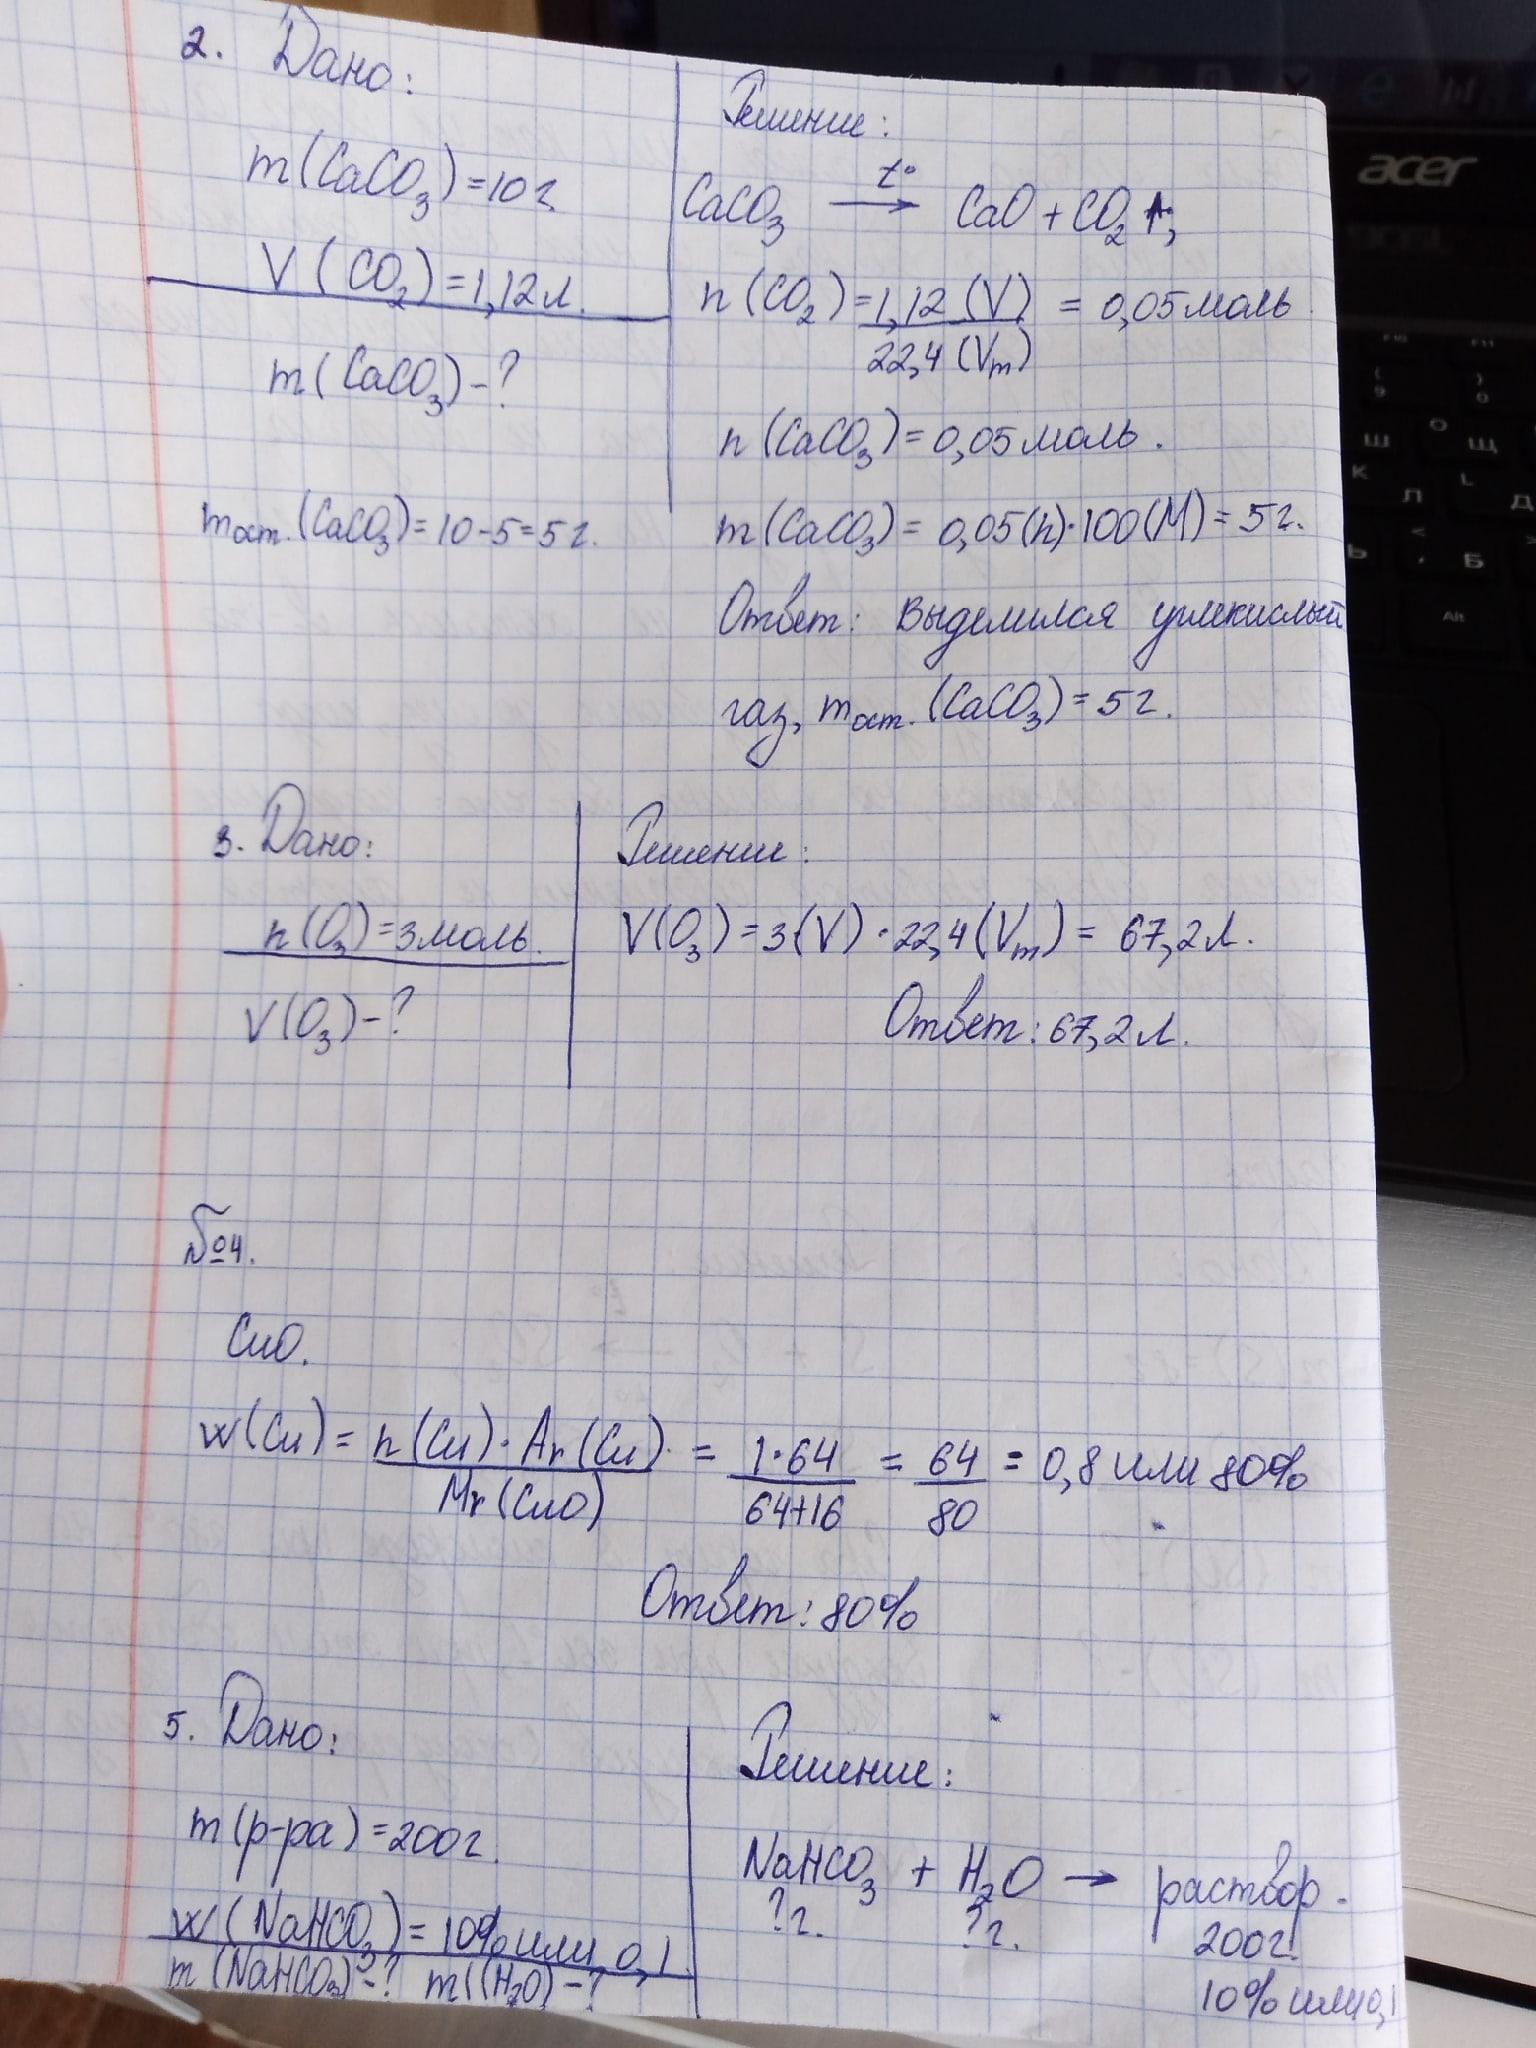 2. Дано:
m(CaCO₃)=10г
V(CO₂)=1,12л.
m(CaCO₃)-?
mост.(CaCO₃)=10-5=5г.
Решение:
CaCO₃ t° → CaO+CO₂↑;
n(CO₂)=1,12(V)/22,4(Vm) = 0,05моль
n(CaCO₃)=0,05моль.
m(CaCO₃)= 0,05(n)·100(M)=5г.
Ответ: Выделился углекислый
газ, mост.(CaCO₃)=5г.
3. Дано:
n(O₃)=3моль.
V(O₃)-?
Решение:
V(O₃)=3(V)·22,4(Vm)= 67,2л.
Ответ: 67,2л.
№4.
CuO.
w(Cu)= n(Cu)·Ar(Cu)/Mr(CuO) = 1·64/64+16 = 64/80 = 0,8 или 80%
Ответ: 80%
5. Дано:
m(р-ра)=200г.
w(NaHCO₃)=10% или 0,1
m(NaHCO₃)-? m((H₂O)-?
Решение:
NaHCO₃ + H₂O → раствор.
?г. ?г. 200г.
10% или 0,1
acer
Ш
Щ
О
К
Л
Д
Ь
Б
Alt